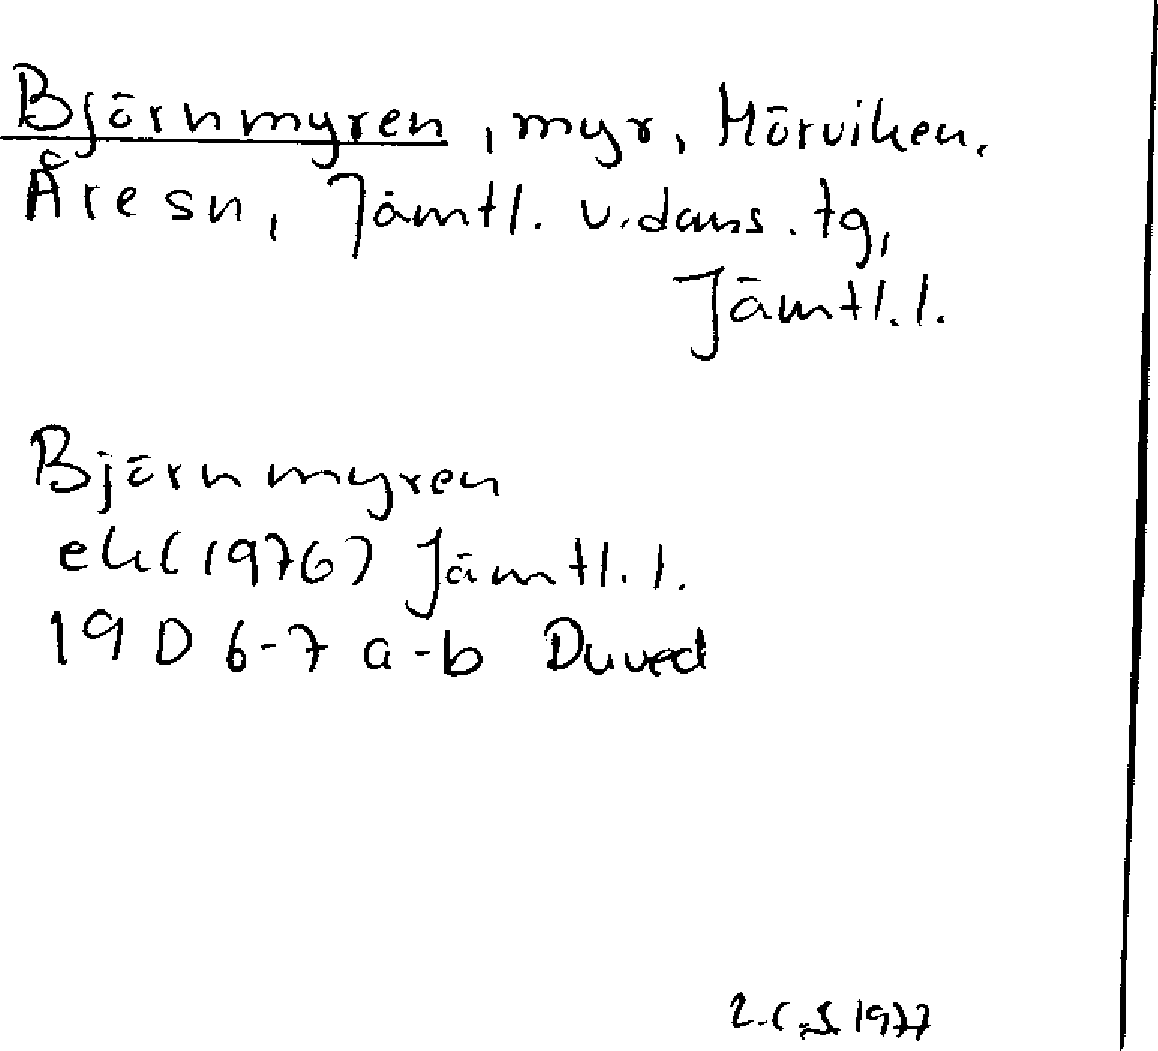 Björnmyren, myr, Hörviken,
Åre sn, Jämtl. v. doms. tg,
Jämtl. l.
Björnmyren
ek (1976) Jämtl. l.
19 D 6-7 a-b Duved
1977